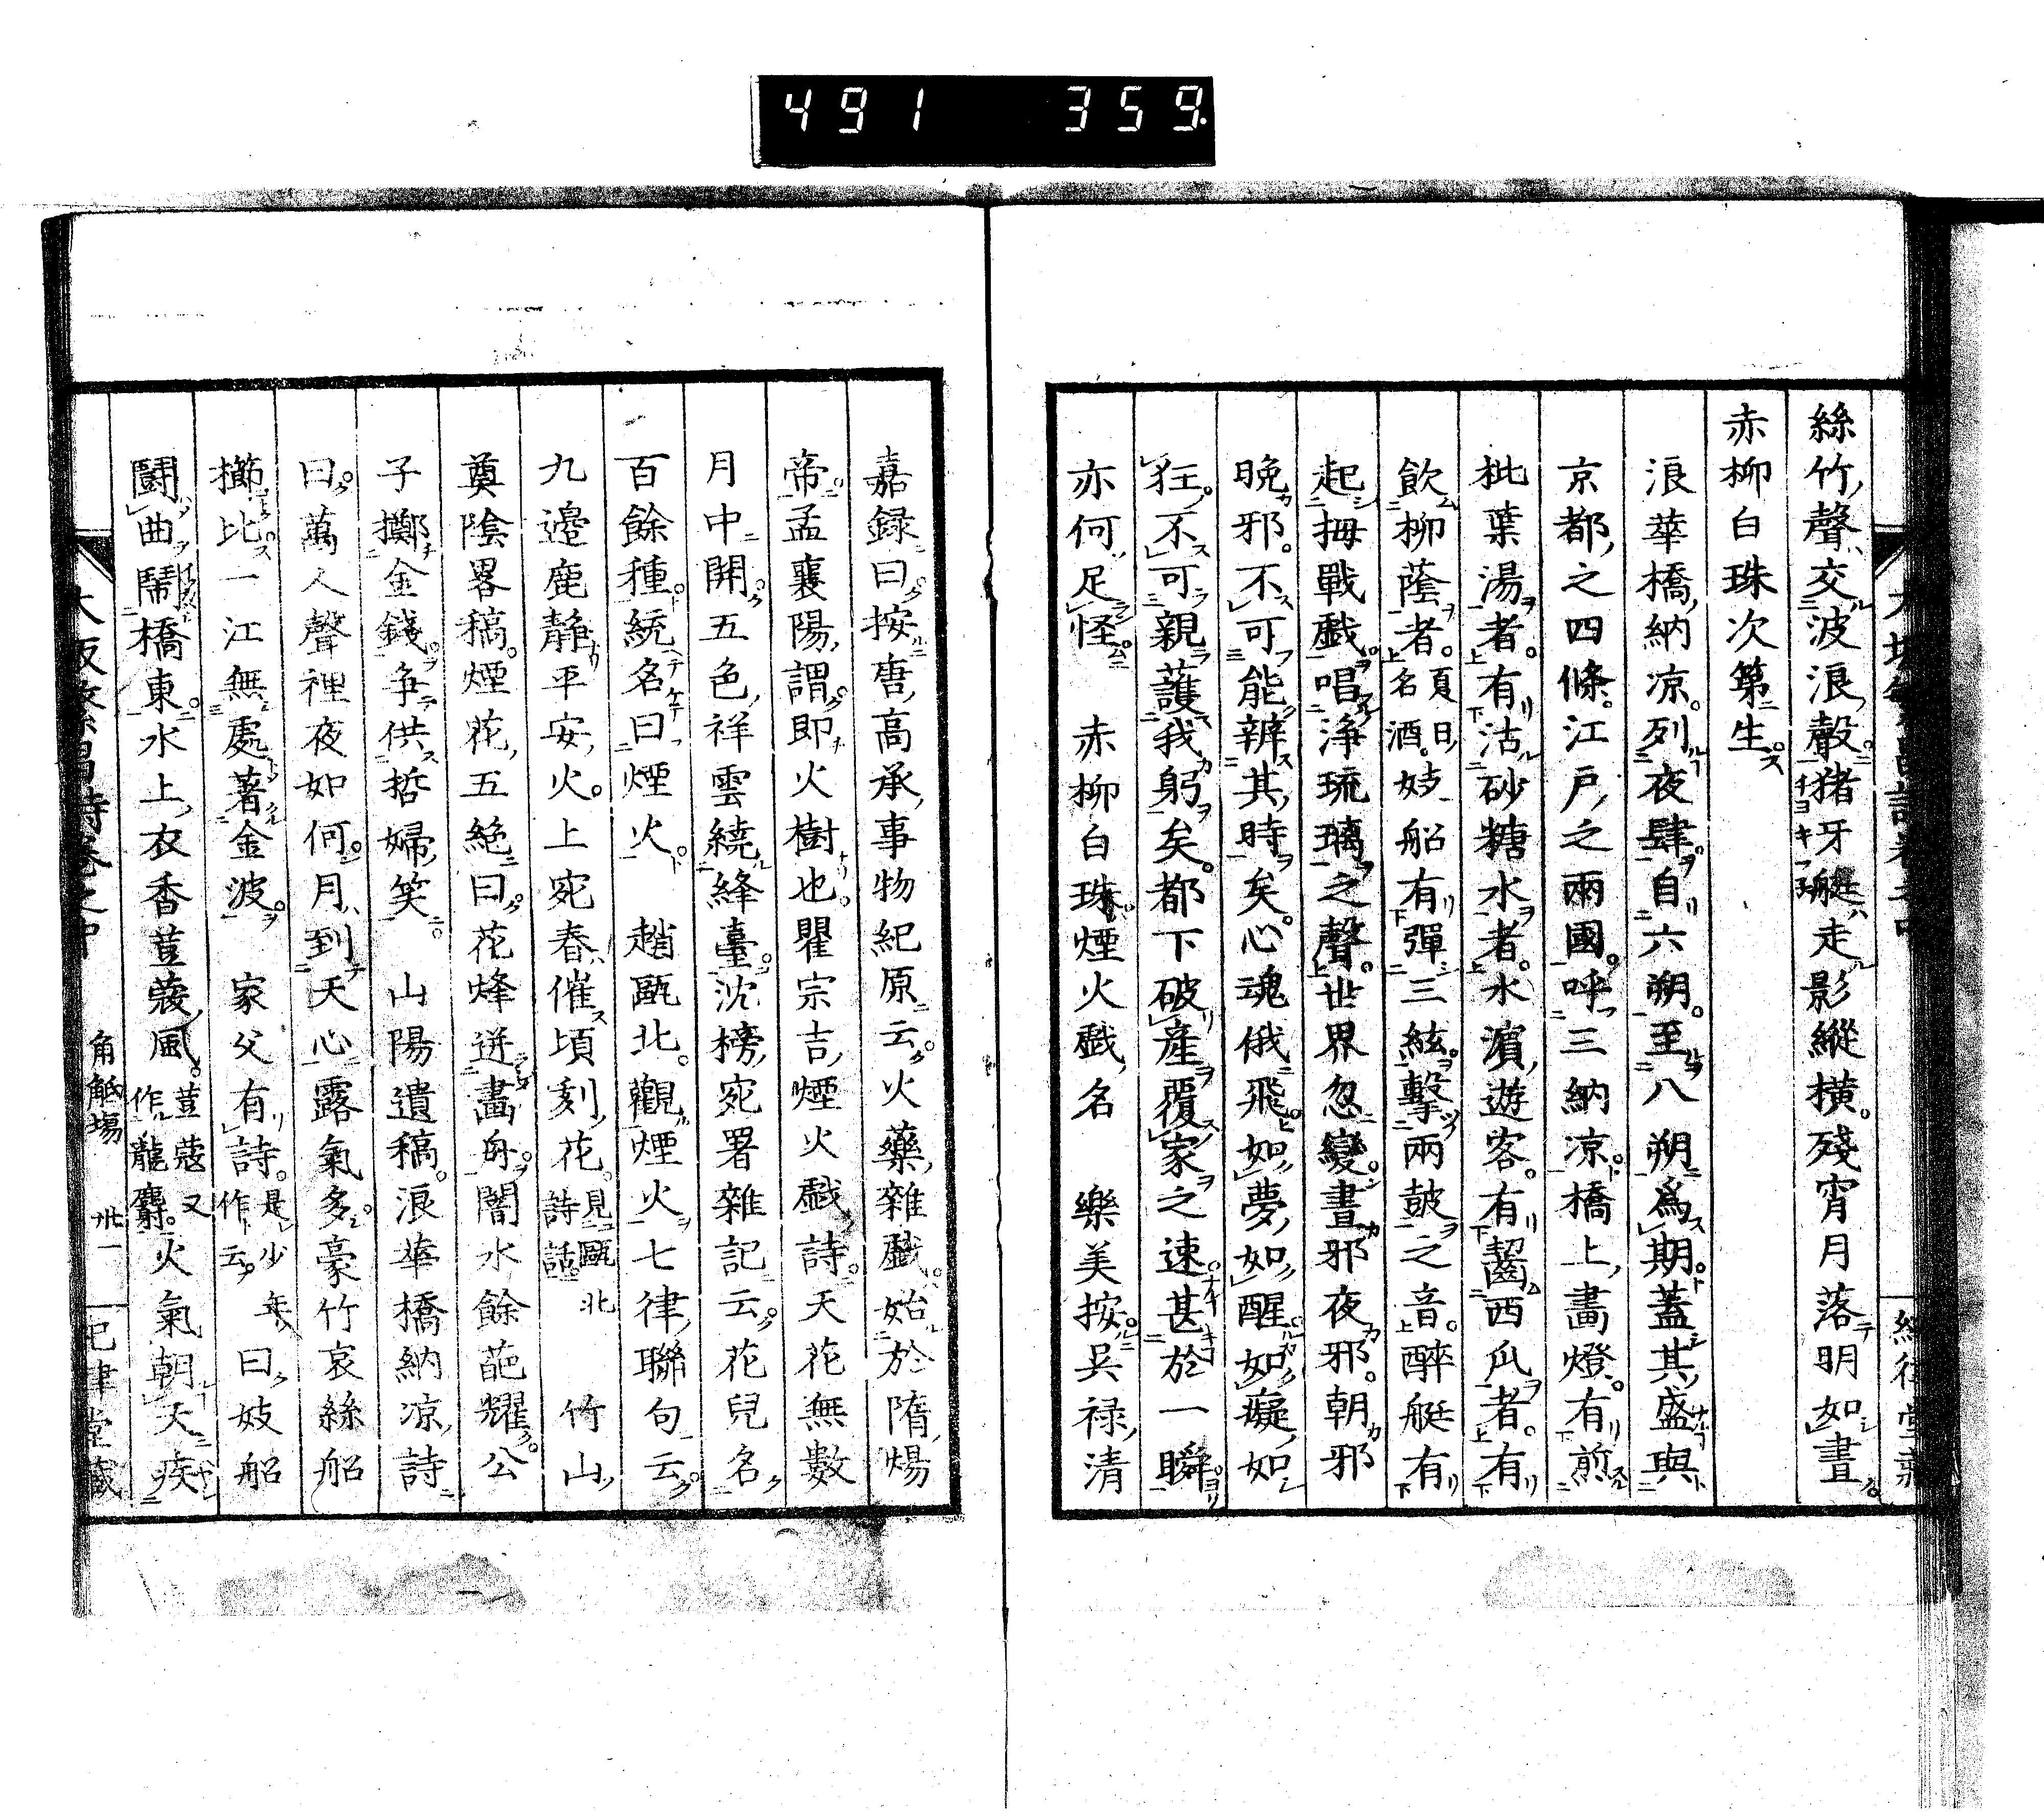 491 359
絲竹聲交波浪聲猪牙艇走影縱横殘宵月落明如晝
赤柳白珠次第生
浪華橋納凉列夜肆自六朔至八朔爲期蓋其盛與
京都之四條江戸之兩國呼三納凉橋上畫燈有煎
枇葉湯者有沽砂糖水者水濵遊客有齧西瓜者有
飲柳蔭者夏日名酒妓船有彈三絃擊兩鼓之音醉艇有
起拇戰戲唱淨琉璃之聲世界忽變晝邪夜邪朝邪
晩邪不可能辨其時矣心魂俄飛如夢如醒如癡如
狂不可親護我躬矣都下破產覆家之速甚於一瞬
亦何足怪　赤柳白珠煙火戲名　樂美按呉禄清
嘉録曰按唐高承事物紀原云火藥雜戲始於隋煬
帝孟襄陽謂即火樹也瞿宗吉煙火戲詩天花無數
月中開五色祥雲繞絳臺沈榜宛署雜記云花兒名
百餘種統名曰煙火　趙甌北觀煙火七律聯句云
九邊鹿靜平安火上宛春催頃刻花見甌北詩話　竹山
奠陰畧稿煙花五絶曰花烽迸畫舟闇水餘葩耀公
子擲金錢争供哲婦笑　山陽遺稿浪華橋納凉詩
曰萬人聲裡夜如何月到天心露氣多豪竹哀絲船
櫛比一江無處著金波　家父有詩是少年作云　曰妓船
鬪曲鬧橋東水上衣香荳蔻風荳蔻又作龍麝火氣朝天疾
大阪繁昌詩卷之中　角觝場　卅一